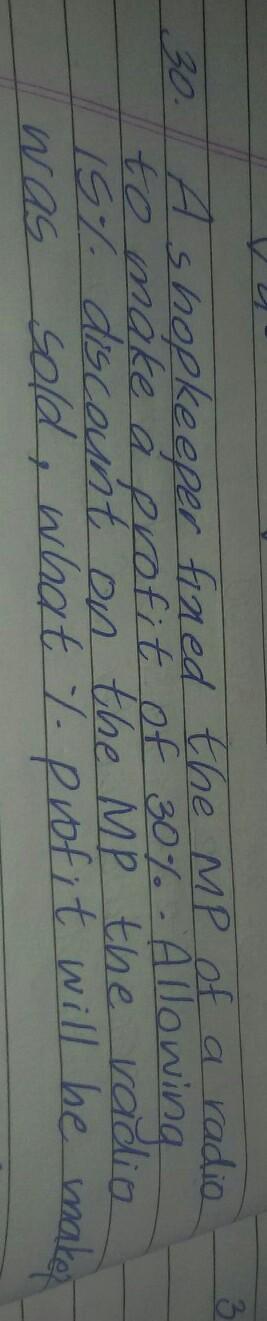 30. A shopkeeper fixed the MP of a radio
to make a profit of 30%. Allowing
15% discount on the MP the radio
was sold, what % profit will he make?
3